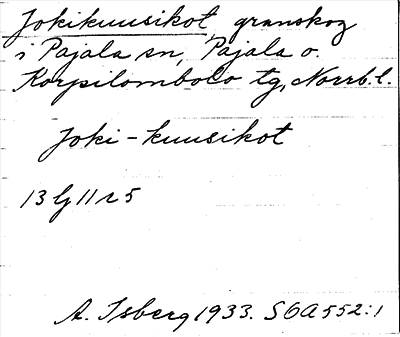 Jokikuusikot granskog
i Pajala sn, Pajala o.
Korpilombolo tg, Norrb.l.
Joki-kuusikot
13 lj 11 r 5
A. Isberg 1933. S 6A 552:1